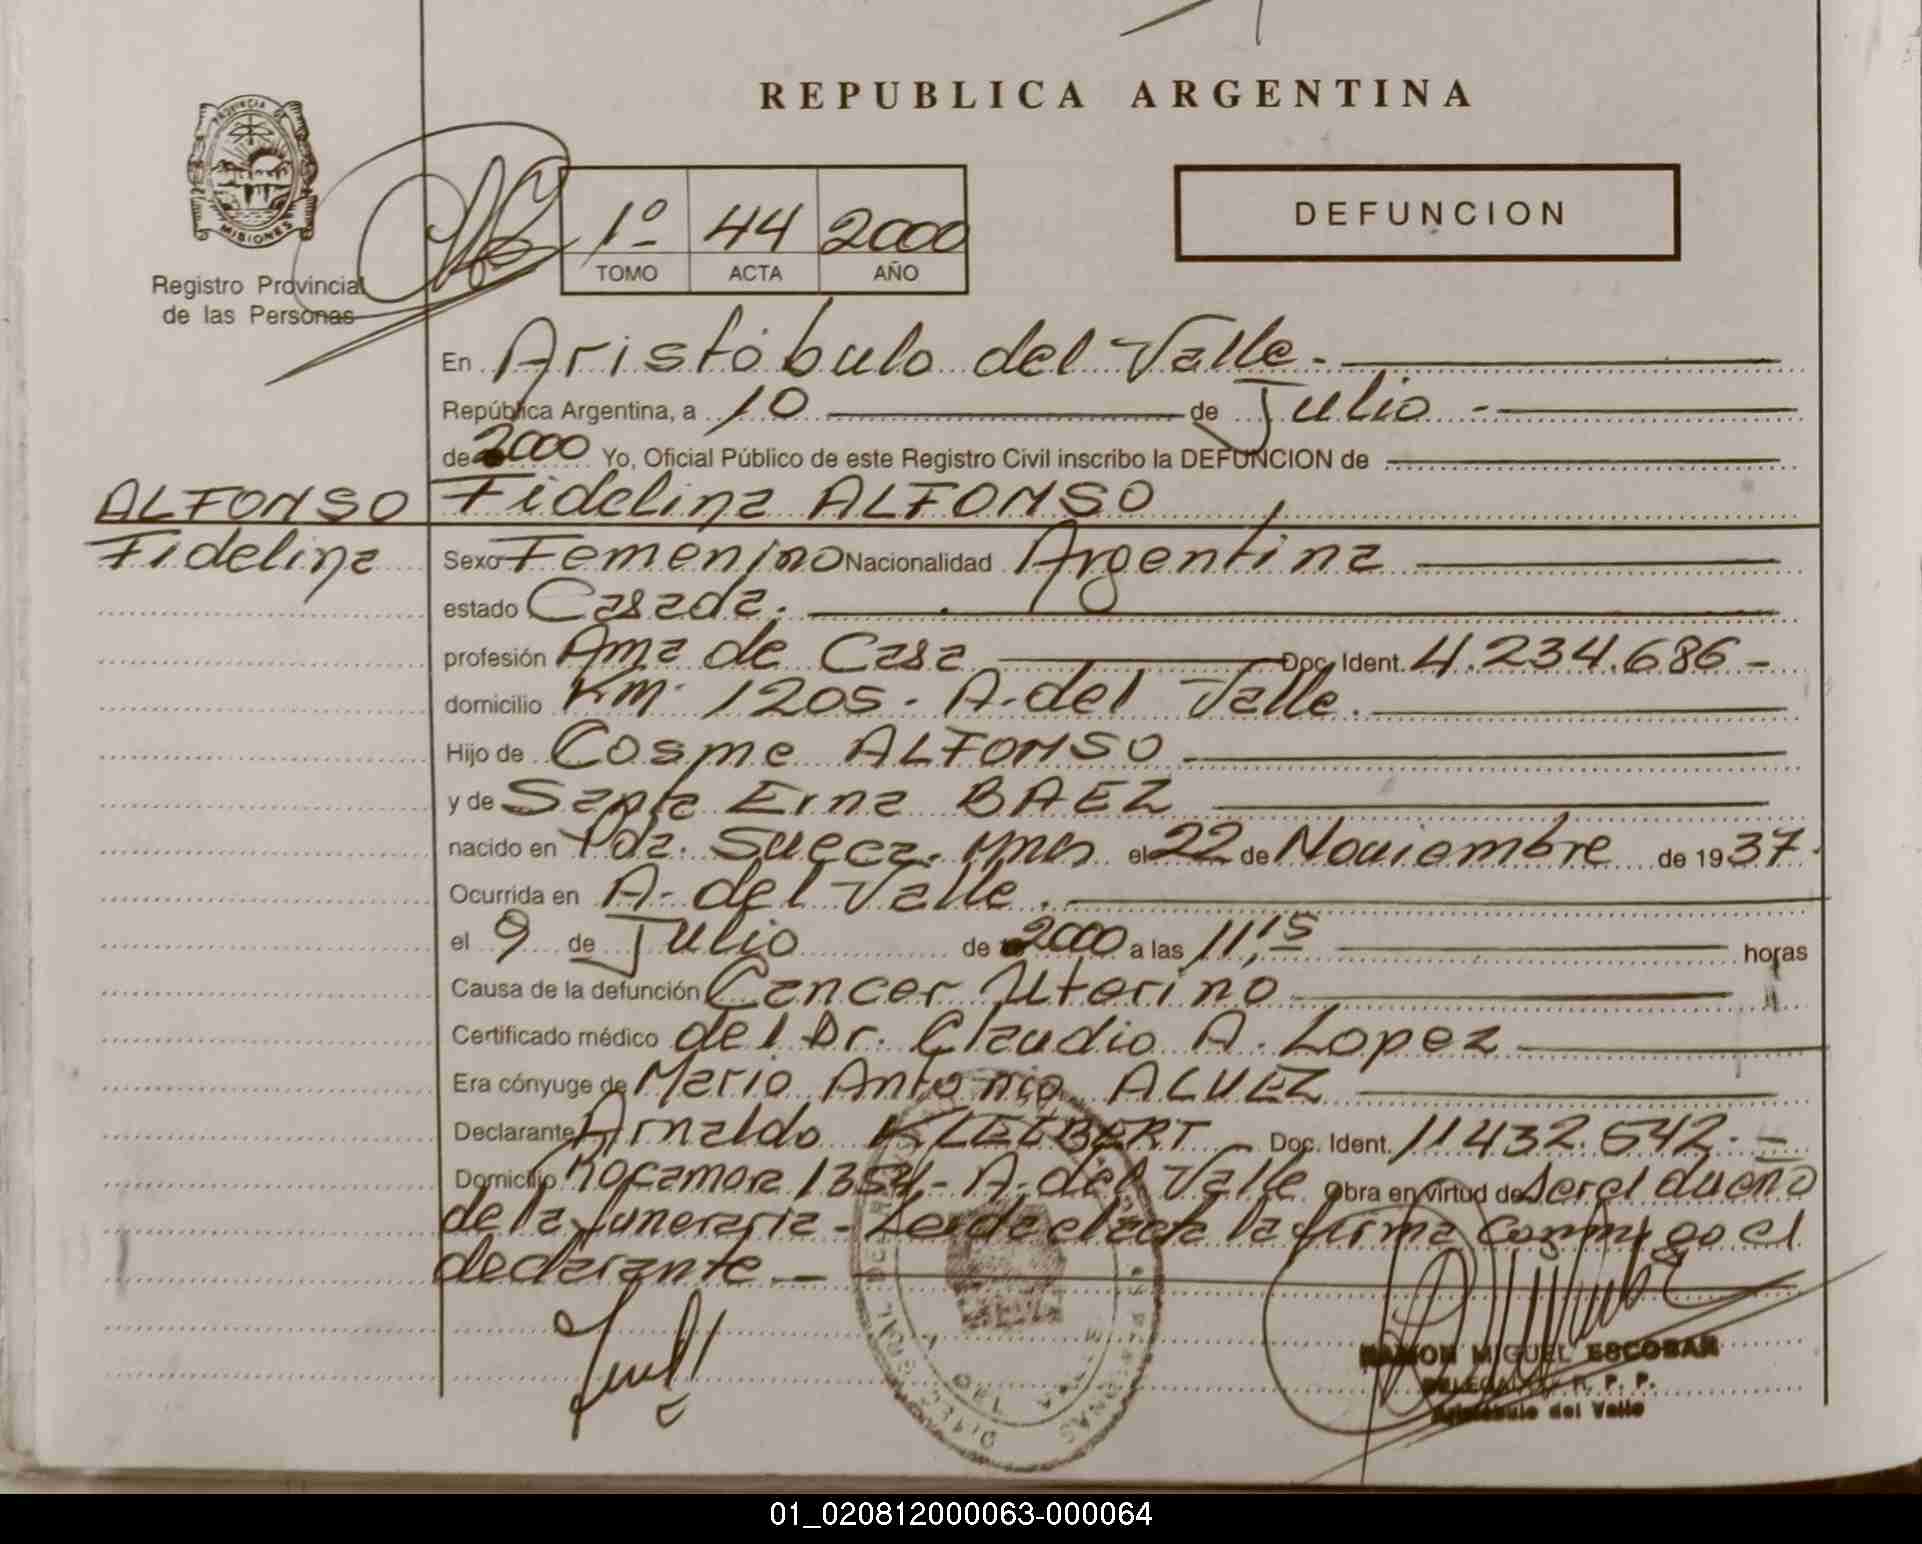 REPUBLICA ARGENTINA
PROVINCIA DE
MISIONES
Registro Provincial
de las Personas
1º 44 2000
TOMO ACTA AÑO
DEFUNCION
En Aristóbulo del Valle.-
República Argentina, a 10 de Julio.-
de 2000 Yo, Oficial Público de este Registro Civil inscribo la DEFUNCION de
ALFONSO Fidelina ALFONSO
Fidelina Sexo Femenino Nacionalidad Argentina
estado Casada.
profesión Ama de Casa Doc. Ident. 4.234.686-
domicilio Km. 1205. A. del Valle.
Hijo de Cosme ALFONSO
y de Santa Erna BAEZ
nacido en Pda. Sueca. Mnes el 22 de Noviembre de 1937.
Ocurrida en A. del Valle.
el 9 de Julio de 2000 a las 11,15 horas
Causa de la defunción Cancer Uterino
Certificado médico del Dr. Claudio A. Lopez
Era cónyuge de Mario Antonio ALVEZ
Declarante Arnaldo KLEIBERT Doc. Ident. 11432.542.-
Domicilio Rocamora 1354- A. del Valle Obra en virtud de ser el dueño
de la funeraria- Leída el acta la firma conmigo el
declarante.-
RAMON MIGUEL ESCOBAR
DELEGADO R. P. P.
Aristóbulo del Valle
01_020812000063-000064